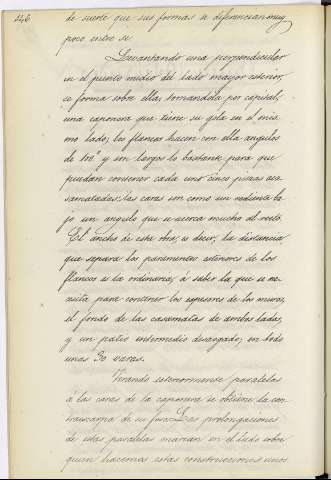 446
de suerte que sus formas se diferencian muy
poco entre sí
Levantando una perpendicular
en el punto medio del lado mayor esterior,
se forma sobre ella, tomandola por capital,
una caponera que tiene su gola en el mis
mo lado; los flancos hacen con ella angulos
de 100° y son largos lo bastante para que
puedan contener cada uno cinco piezas aca
samatadas; las caras son como un rediente ba
jo un angulo que se acerca mucho al recto.
El ancho de esta obra, es decir, la distancia
que separa los paramentos esteriores de los
flancos es la ordinaria, á saber la que se ne
cesita para contener los espesores de los muros,
el fondo de las casamatas de ambos lados,
y un patio intermedio desaogado; en todo
unas 30 varas.
Tirando esteriormente paralelas
á las caras de la caponera se obtiene la con
traescarpa de su foso. Las prolongaciones
de estas paralelas marcan en el lado sobre
quien hacemos estas construcciones unos